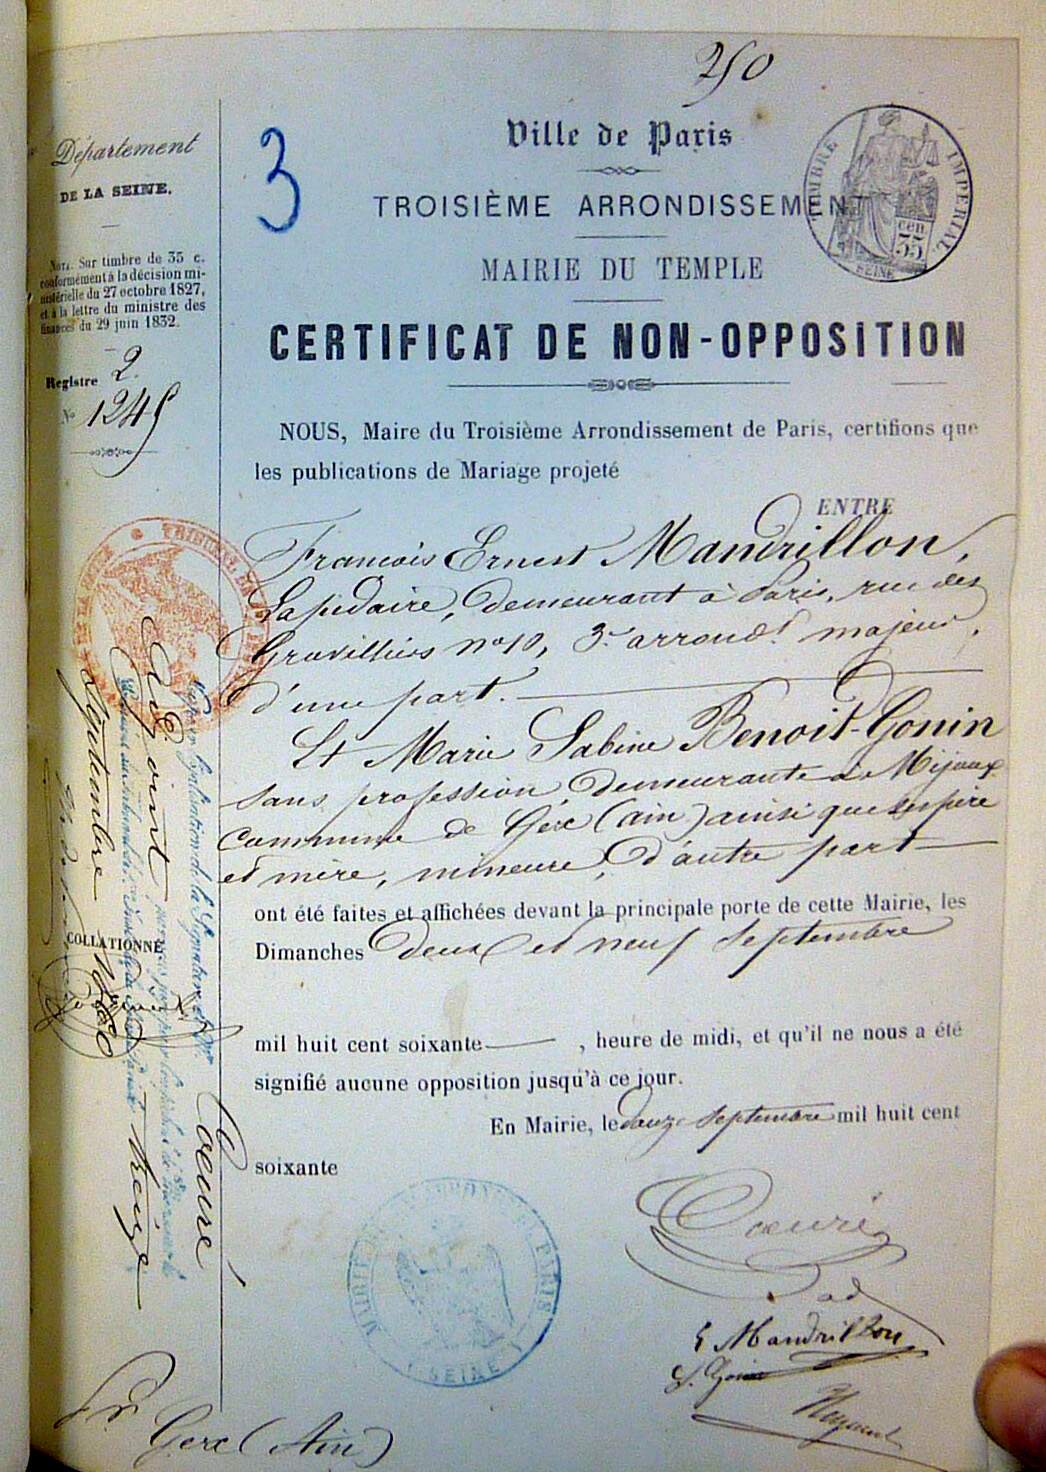 250
Département
DE LA SEINE.
3
Ville de Paris
TROISIÈME ARRONDISSEMENT
MAIRIE DU TEMPLE
TIMBRE IMPERIAL
35 cen
SEINE
NOTA. Sur timbre de 35 c.
conformément à la décision mi-
nistérielle du 27 octobre 1827,
et à la lettre du ministre des
finances du 29 juin 1832.
Registre 2.
No 1245
CERTIFICAT DE NON-OPPOSITION
NOUS, Maire du Troisième Arrondissement de Paris, certifions que
les publications de Mariage projeté
ENTRE
François Ernest Mandrillon,
Lapidaire, demeurant à Paris, rue des
Gravilliers no 10, 3e arrondt majeur,
d'une part.
Et Marie Sabine Benoit-Gonin
sans profession, demeurante à Mijoux
Commune de Gex (ain) ainsi que ses père
et mère, mineure, d'autre part
ont été faites et affichées devant la principale porte de cette Mairie, les
Dimanches deux et neuf Septembre
mil huit cent soixante , heure de midi, et qu'il ne nous a été
signifié aucune opposition jusqu'à ce jour.
En Mairie, le douze septembre mil huit cent
soixante
COLLATIONNÉ
Vu pour légalisation de la Signature de Mr Coeuré
Adjoint
treize
septembre 1860
MAIRIE DU 3e ARRONDt DE PARIS
(SEINE)
Coeuré
adj
E Mandrillon
S. Gonin
Pr Gex (Ain)